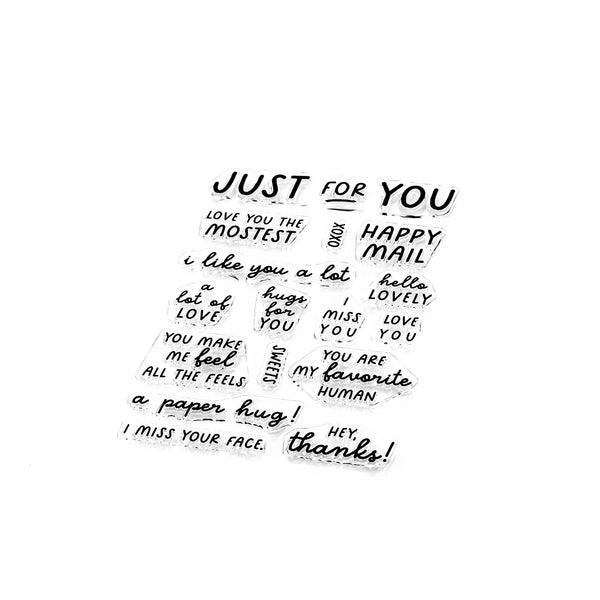 JUST FOR YOU
LOVE YOU THE
MOSTEST
XOXO
HAPPY
MAIL
i like you a lot
hello
LOVELY
a
lot of
LOVE
hugs
for
YOU
I
MISS
YOU
LOVE
YOU
YOU MAKE
ME feel
ALL THE FEELS
SWEETS
YOU ARE
MY favorite
HUMAN
a paper hug!
I MISS YOUR FACE.
HEY,
thanks!